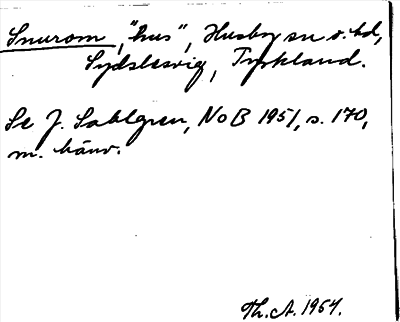 Snurom, "hus", Husby sn o. hd,
Sydslesvig, Tyskland.
Se J. Sahlgren, NoB 1951, s. 170,
m. hänv.
Th. A. 1954.